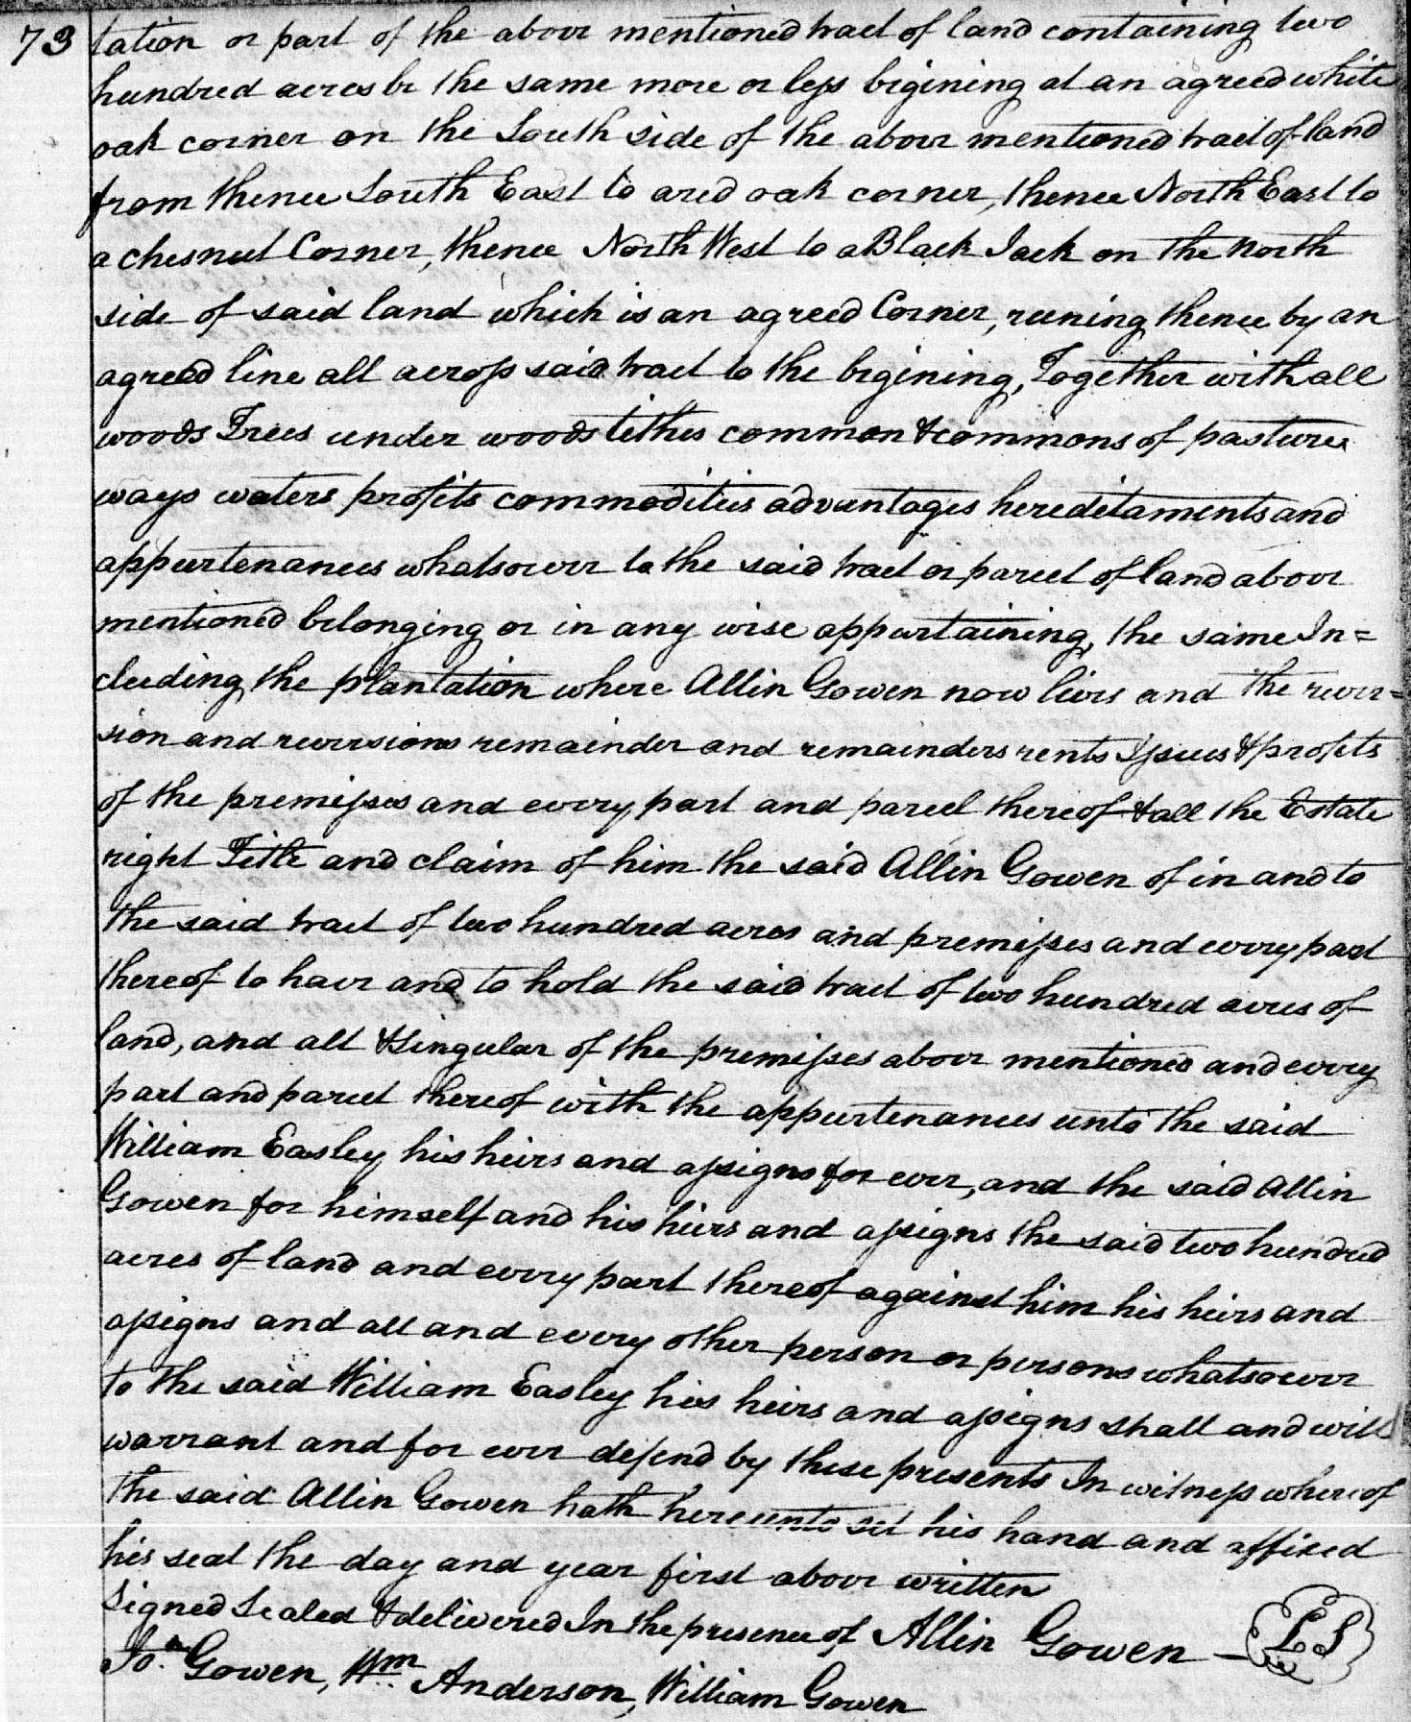 73 tation or part of the above mentioned tract of land containing two
hundred acres be the same more or less bigining at an agreed white
oak corner on the South side of the above mentioned tract of land
from thence South East to a red oak corner, thence North East to
a chesnut Corner, thence North West to a Black Jack on the North
side of said land which is an agreed Corner, runing thence by an
agreed line all across said tract to the bigining, Together with all
woods Trees under woods tithes common & commons of pastures
ways waters profits commodities advantages hereditaments and
appurtenances whatsoever to the said tract or parcel of land above
mentioned belonging or in any wise appurtaining, the same In=
cluding the plantation where Allin Gowen now lives and the rever=
sion and reversions remainder and remainders rents Issues & profits
of the premises and every part and parcel thereof & all the Estate
right Title and claim of him the said Allin Gowen of in and to
the said tract of two hundred acres and premises and every part
thereof to have and to hold the said tract of two hundred acres of
land, and all & singular of the premises above mentioned and every
part and parcel thereof with the appurtenances unto the said
William Easley his heirs and assigns for ever, and the said Allin
Gowen for himself and his heirs and assigns the said two hundred
acres of land and every part thereof against him his heirs and
assigns and all and every other person or persons whatsoever
to the said William Easley his heirs and assigns shall and will
warrant and for ever defend by these presents In witness whereof
the said Allin Gowen hath hereunto set his hand and affixed
his seal the day and year first above written
Signed Sealed & delivered In the presence of Allin Gowen LS
Jo.a Gowen, Wm Anderson, William Gowen